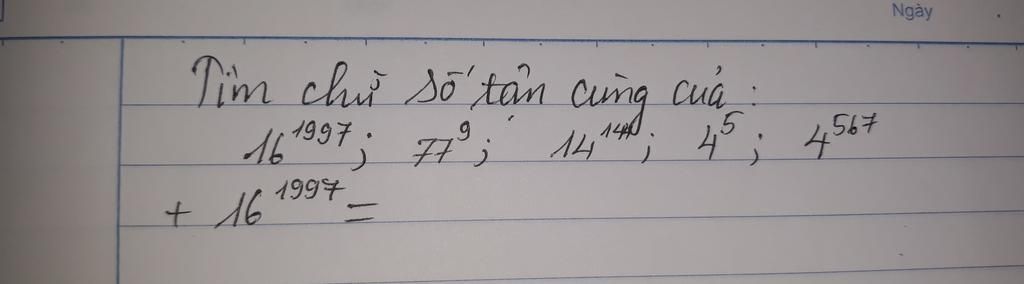 Ngày
Tìm chữ số tản cùng của :
16^1997; 77^9; 14^14; 4^5; 4^567
+ 16^1997 =